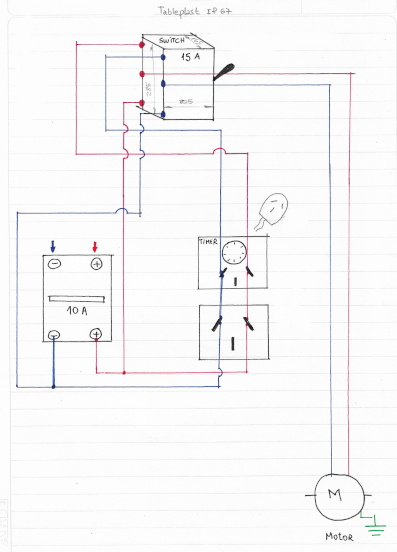 Tableplast IP 67
SWITCH
15 A
TIMER
- +
10 A
- +
M
MOTOR